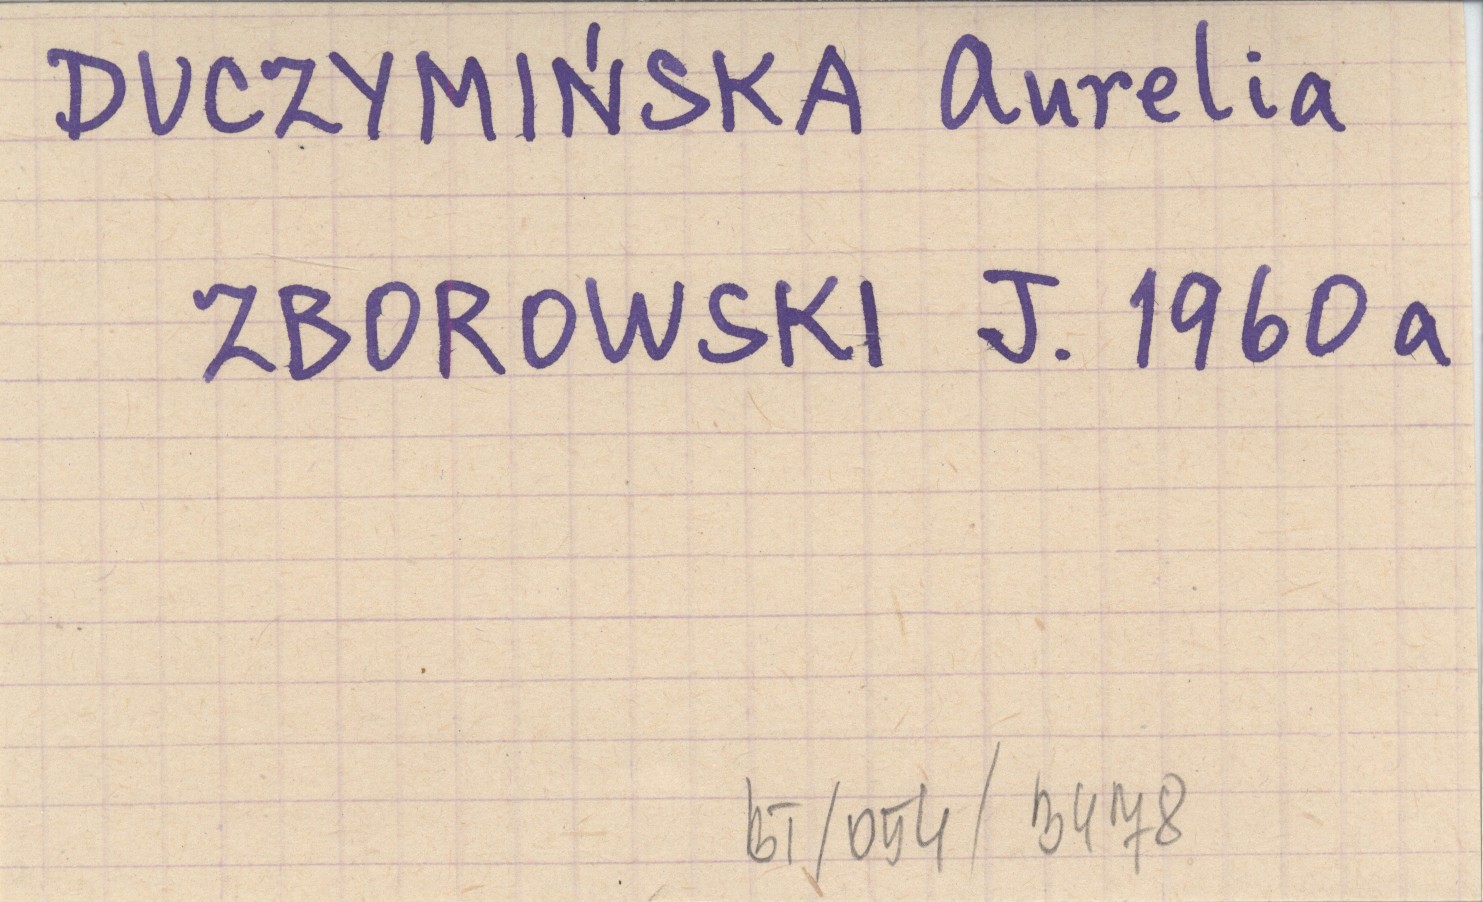 DUCZYMIŃSKA Aurelia
ZBOROWSKI J. 1960 a
BT/054/3478